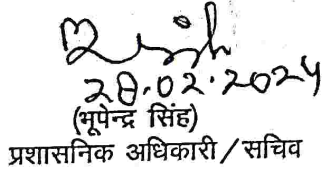 28.02.2024
(भूपेन्द्र सिंह)
प्रशासनिक अधिकारी / सचिव